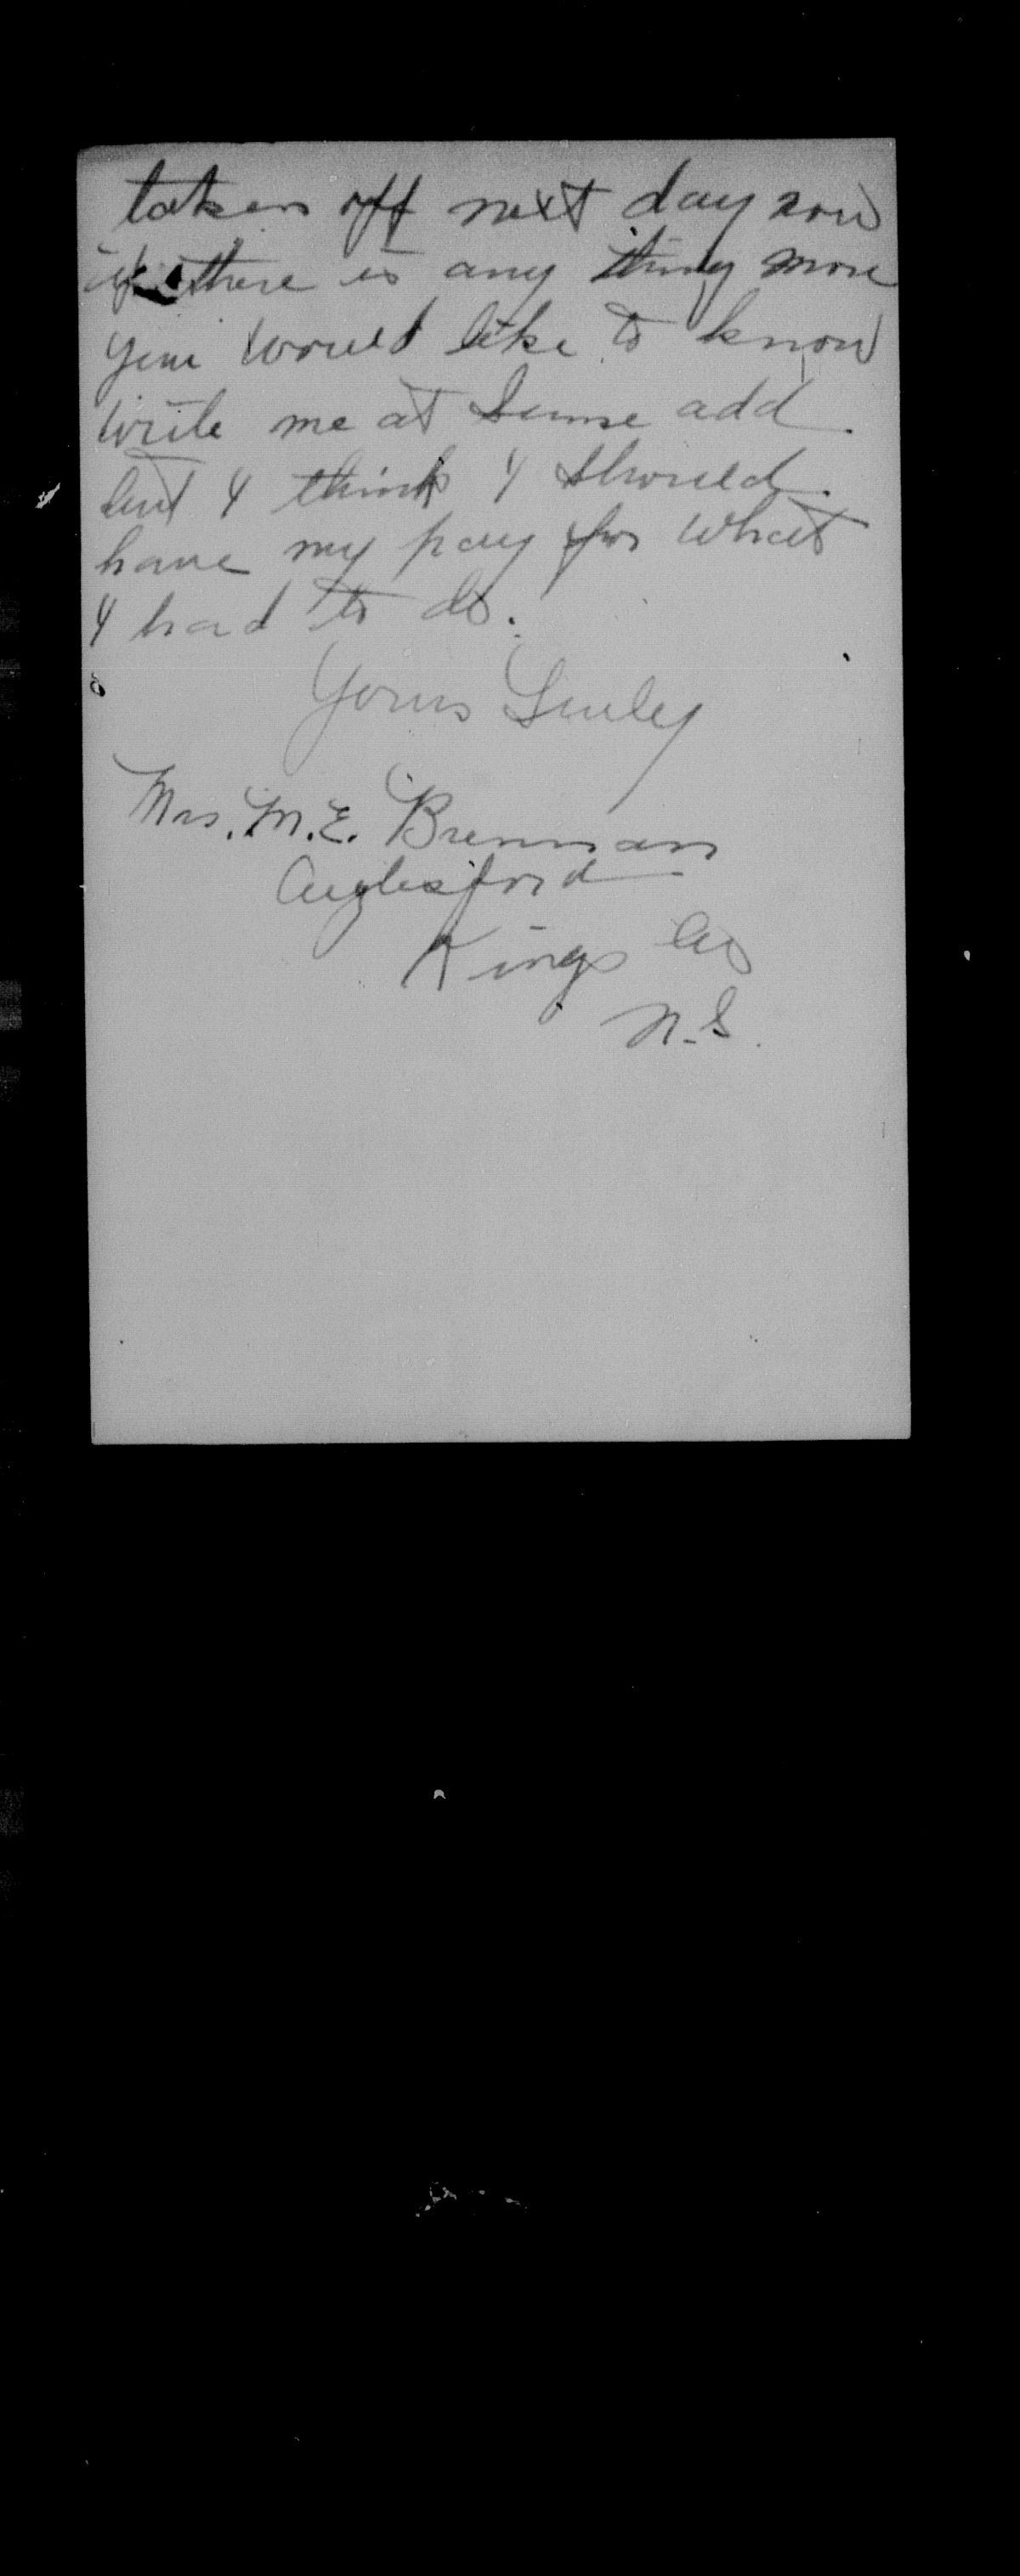 taken off next day now
if there is any thing more
you would like to know
write me at Same add.
but I think I should.
have my pay for what
I had to do.
Yours
Mrs. M.E. Brennan
Aylesford
Kings Co
N.S.